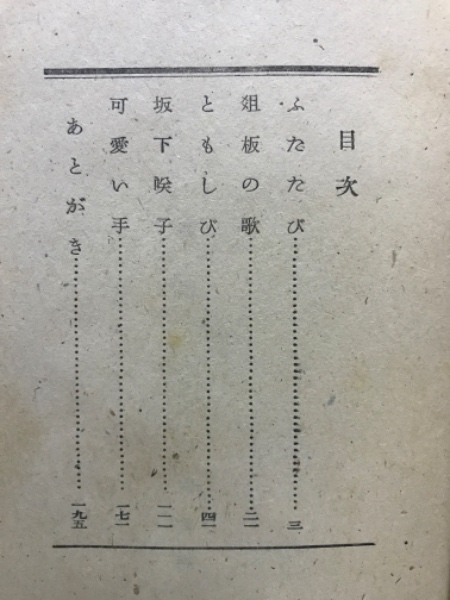 目次
ふたたび……………………三
爼板の歌……………………二一
ともしび……………………四一
坂下咲子……………………一一一
可愛い手……………………一七一
あとがき……………………一九五